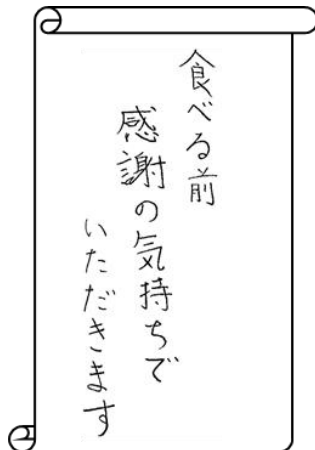 食べる前
感謝の気持ちで
いただきます